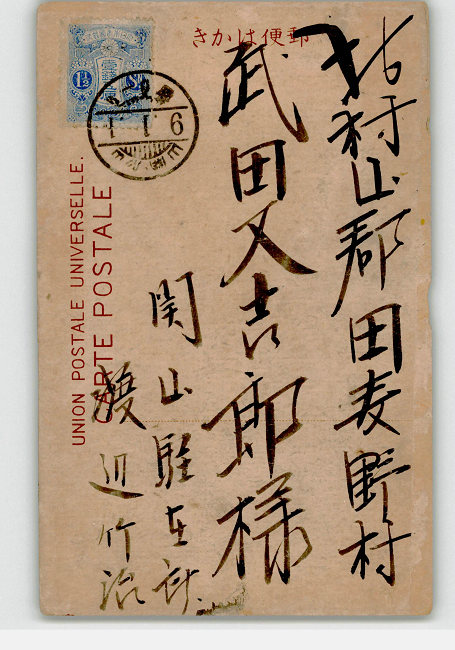 郵便はかき
北村山郡田麦野村
武田又吉郎様
関山駐在所
渡辺竹治
UNION POSTALE UNIVERSELLE.
CARTE POSTALE
1½
Sn
6.1.1